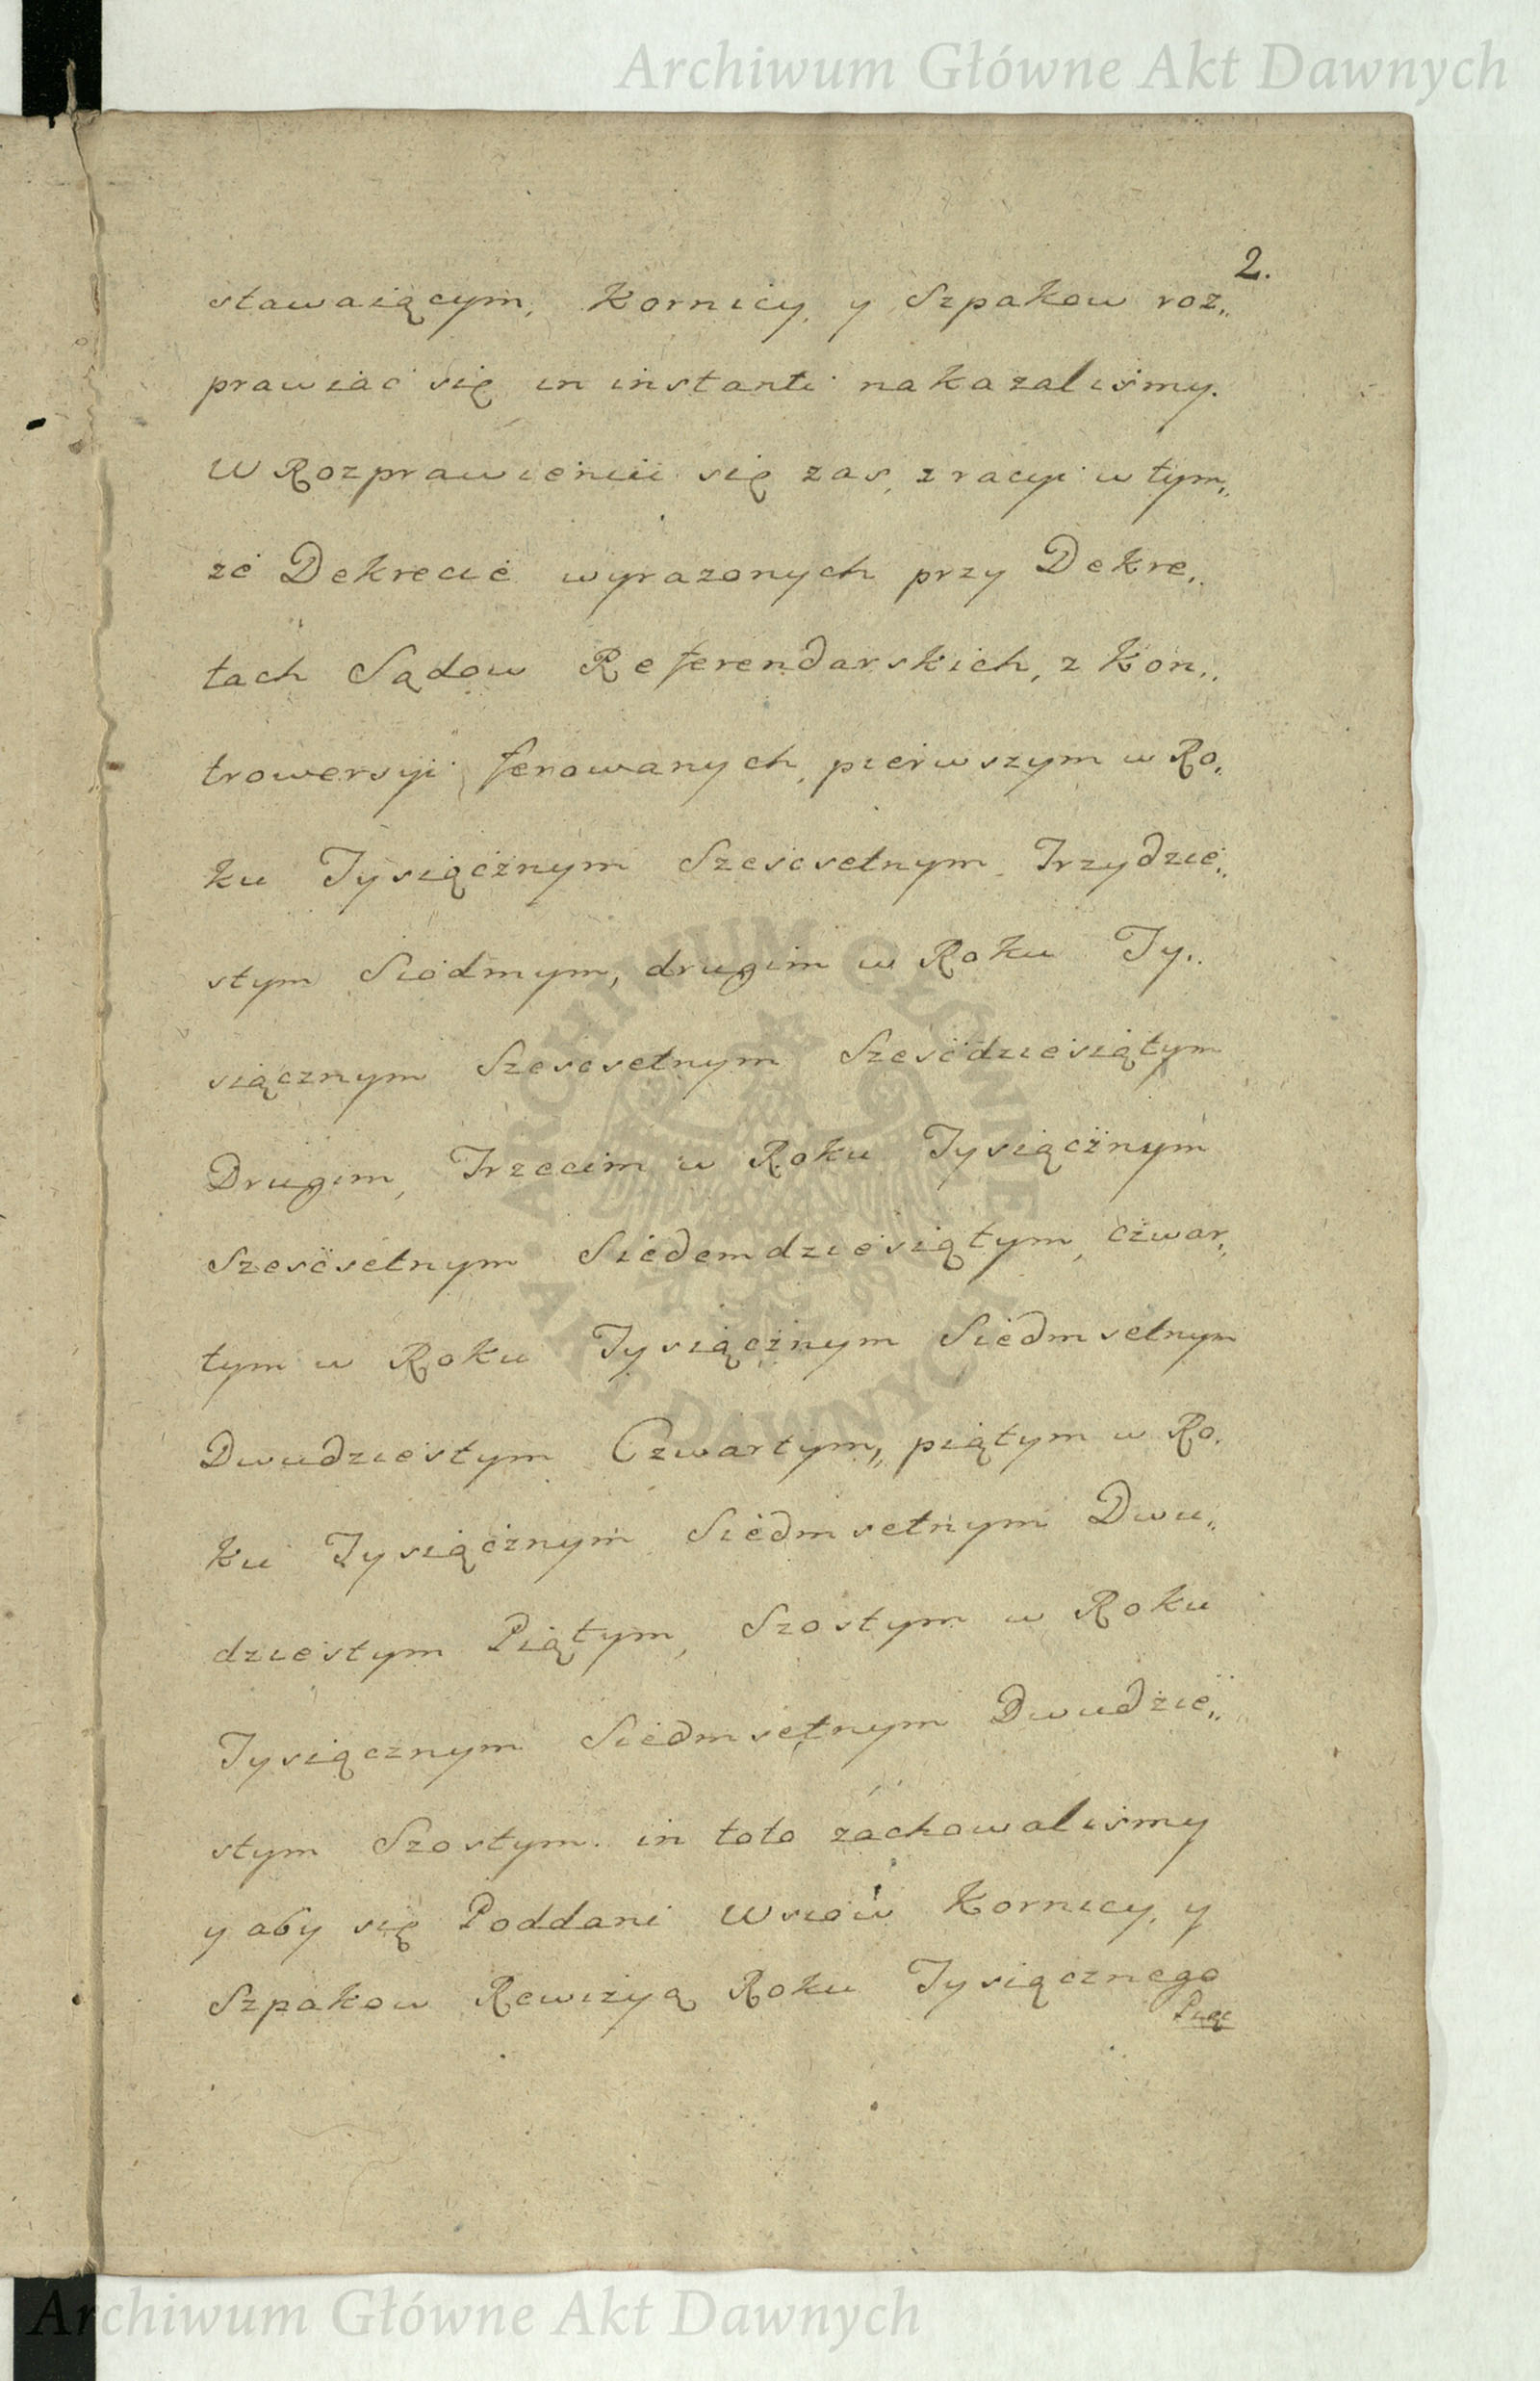 Archiwum Główne Akt Dawnych
2.
stawaiącym, Kornicy, y Szpakow roz„
prawiać się in instanti nakazaliśmy.
W Rozprawieniu się zas, z racyi w tym„
że Dekrecie wyrazonych przy Dekre„
tach Sądow Referendarskich, z Kon„
trowersyi ferowanych, pierwszym w Ro„
ku Tysiącznym Szescsetnym Trzydzie„
stym Siodmym, drugim w Roku Ty„
siącznym Szescsetnym Szesćdziesiątym
Drugim, Trzecim w Roku Tysiącznym
Szesćsetnym Siedemdziesiątym, czwar„
tym w Roku Tysiącznym Siedmsetnym
Dwudziestym Czwartym, piątym w Ro„
ku Tysiącznym Siedmsetnym Dwu„
dziestym Piątym, Szostym w Roku
Tysiącznym Siedmsetnym Dwudzie„
stym Szostym in toto zachowaliśmy
y aby się Poddani Wsiów Kornicy, y
Szpakow Rewizyą Roku Tysiącznego
Pięć
ARCHIWUM GŁÓWNE · AKT DAWNYCH ·
Archiwum Główne Akt Dawnych